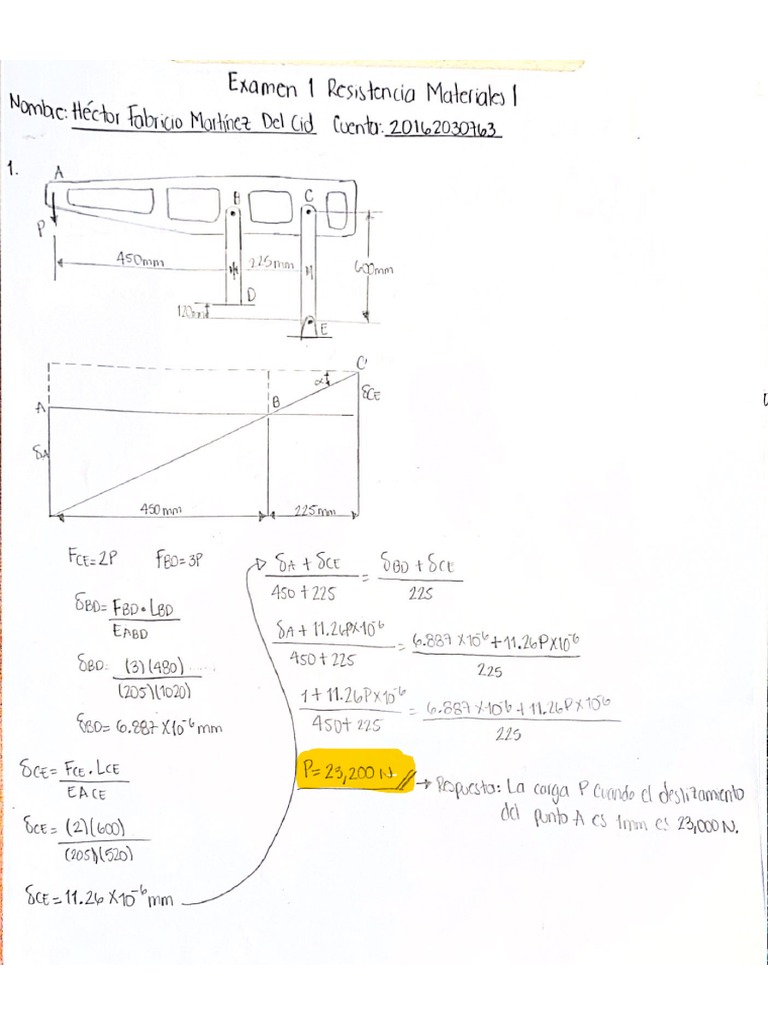 Examen 1 Resistencia Materiales 1
Nombre: Héctor Fabricio Martínez Del Cid Cuenta: 20162030763
1.
A
B C
P
450mm 225mm 600mm
D
120mm
E
C'
α
B δCE
A
δA
450mm 225mm
FCE=2P FBD=3P
δBD= FBD·LBD
EABD
δBD: (3)(480)......
(205)(1020)
δBD= 6.887 X10⁻⁶ mm
δCE= FCE.LCE
EACE
δCE= (2)(600)
(205)(520)
δCE=11.26 X10⁻⁶ mm
δA + δCE = δBD + δCE
450+225 225
δA + 11.26PX10⁻⁶ = 6.887 X10⁻⁶ +11.26PX10⁻⁶
450+225 225
1+11.26PX10⁻⁶ = 6.887 X10⁻⁶ +11.26PX10⁻⁶
450+225 225
P=23,200 N. → Respuesta: La carga P cuando el deslizamiento
del punto A es 1mm es 23,000 N.